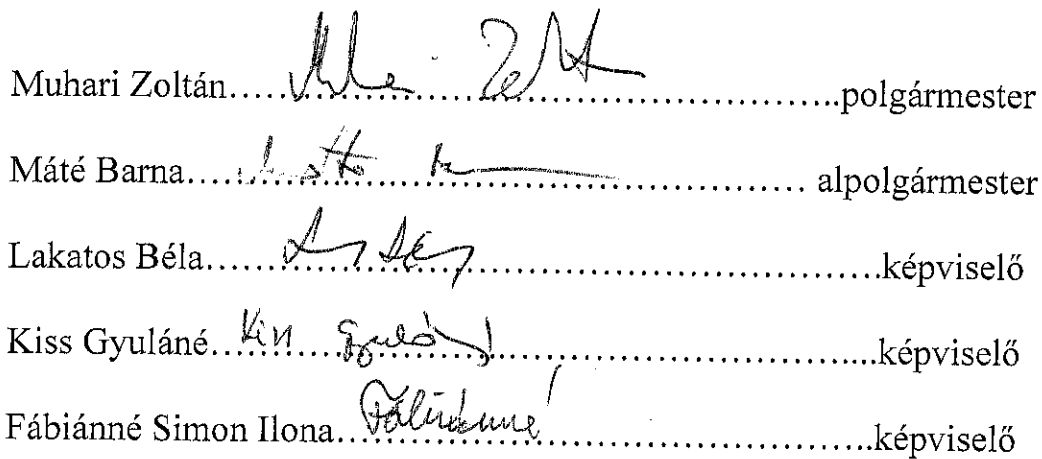 Muhari Zoltán..............................................................polgármester
Máté Barna.............................................................. alpolgármester
Lakatos Béla..............................................................képviselő
Kiss Gyuláné....Kiss Gyuláné..............................................képviselő
Fábiánné Simon Ilona....Fábiánné..............................................képviselő